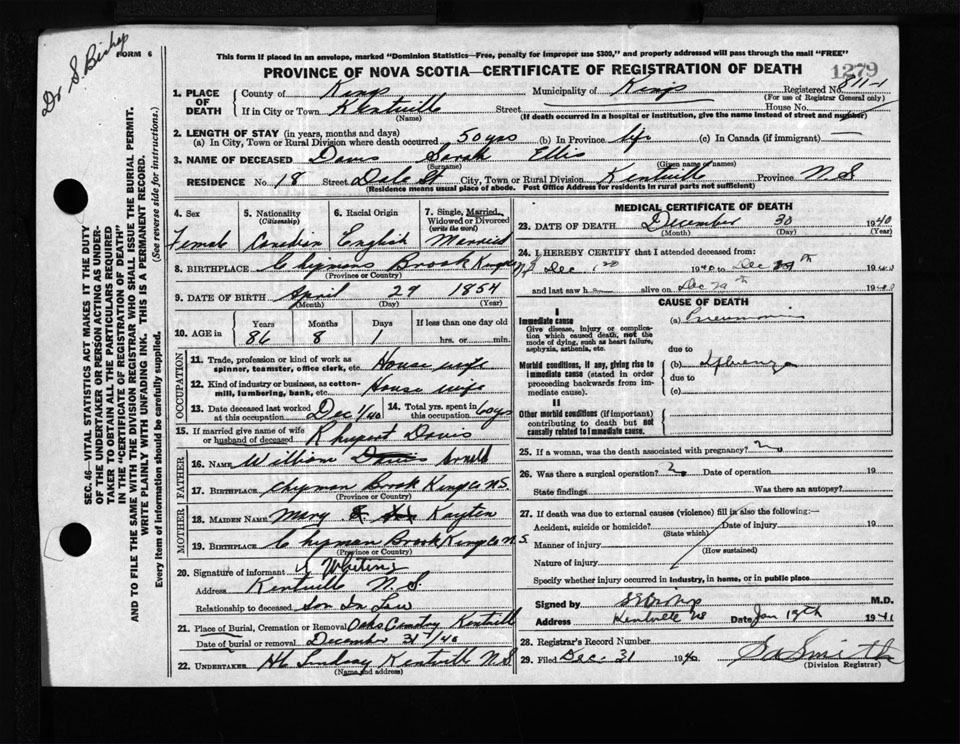 Dr S. Bishop
FORM 6
This form if placed in an envelope, marked "Dominion Statistics—Free, penalty for improper use $300," and properly addressed will pass through the mail "FREE"
PROVINCE OF NOVA SCOTIA—CERTIFICATE OF REGISTRATION OF DEATH
1279
1. PLACE OF DEATH
County of Kings Municipality of Kings Registered No. 811-1
(For use of Registrar General only)
If in City or Town Kentville Street House No.
(Name) (If death occurred in a hospital or institution, give the name instead of street and number)
2. LENGTH OF STAY (in years, months and days)
(a) In City, Town or Rural Division where death occurred 50 yrs (b) In Province life (c) In Canada (if immigrant)
3. NAME OF DECEASED Davis Sarah Ellis
(Surname) (Given name or names)
RESIDENCE No. 18 Street Dale St City, Town or Rural Division Kentville Province N S
(Residence means usual place of abode. Post Office Address for residents in rural parts not sufficient)
4. Sex
Female
5. Nationality
(Citizenship)
Canadian
6. Racial Origin
English
7. Single, Married,
Widowed or Divorced
(write the word)
Married
8. BIRTHPLACE Chipmans Brook Kings
(Province or Country)
9. DATE OF BIRTH April 29 1854
(Month) (Day) (Year)
10. AGE in
Years Months Days If less than one day old
86 8 1 hrs. or min.
OCCUPATION
11. Trade, profession or kind of work as
spinner, teamster, office clerk, etc. House wife
12. Kind of industry or business, as cotton-
mill, lumbering, bank, etc. House wife
13. Date deceased last worked
at this occupation Dec 1/40
14. Total yrs. spent in
this occupation 60 yrs
15. If married give name of wife
or husband of deceased R Rupert Davis
FATHER
16. NAME William Davis Arnold
17. BIRTHPLACE Chipman Brook Kings Co N.S.
(Province or Country)
MOTHER
18. MAIDEN NAME Mary Kayten
19. BIRTHPLACE Chipman Brook Kings Co N.S.
(Province or Country)
20. Signature of informant Whiting
Address Kentville N.S.
Relationship to deceased Son In Law
21. Place of Burial, Cremation or Removal Oaks Cemetry Kentville
Date of burial or removal December 31/40
22. UNDERTAKER Lindsay Kentville N S
(Name and address)
MEDICAL CERTIFICATE OF DEATH
23. DATE OF DEATH December 30 1940
(Month) (Day) (Year)
24. I HEREBY CERTIFY that I attended deceased from:
Dec 1940 to Dec th 1940
and last saw h alive on Dec 29th 1940
CAUSE OF DEATH
I
Immediate cause
Give disease, injury or complica-
tion which caused death, not the
mode of dying, such as heart failure,
asphyxia, asthenia, etc.
(a) Pneumonia
due to
Morbid conditions, if any, giving rise to
immediate cause (stated in order
proceeding backwards from im-
mediate cause).
(b) Influenza
due to
(c)
II
Other morbid conditions (if important)
contributing to death but not
causally related to immediate cause.
25. If a woman, was the death associated with pregnancy?
26. Was there a surgical operation? Date of operation 19
State findings Was there an autopsy?
27. If death was due to external causes (violence) fill in also the following:
Accident, suicide or homicide? Date of injury 19
(State which)
Manner of injury
(How sustained)
Nature of injury
Specify whether injury occurred in industry, in home, or in public place
Signed by S Bishop M.D.
Address Kentville NS Date Jan 19th 1941
28. Registrar's Record Number
29. Filed Dec. 31 1940 Smith
(Division Registrar)
SEC. 46— VITAL STATISTICS ACT MAKES IT THE DUTY
OF THE UNDERTAKER OR PERSON ACTING AS UNDER-
TAKER TO OBTAIN ALL THE PARTICULARS REQUIRED
IN THE "CERTIFICATE OF REGISTRATION OF DEATH"
AND TO FILE THE SAME WITH THE DIVISION REGISTRAR WHO SHALL ISSUE THE BURIAL PERMIT.
WRITE PLAINLY WITH UNFADING INK. THIS IS A PERMANENT RECORD.
Every item of information should be carefully supplied. (See reverse side for instructions.)